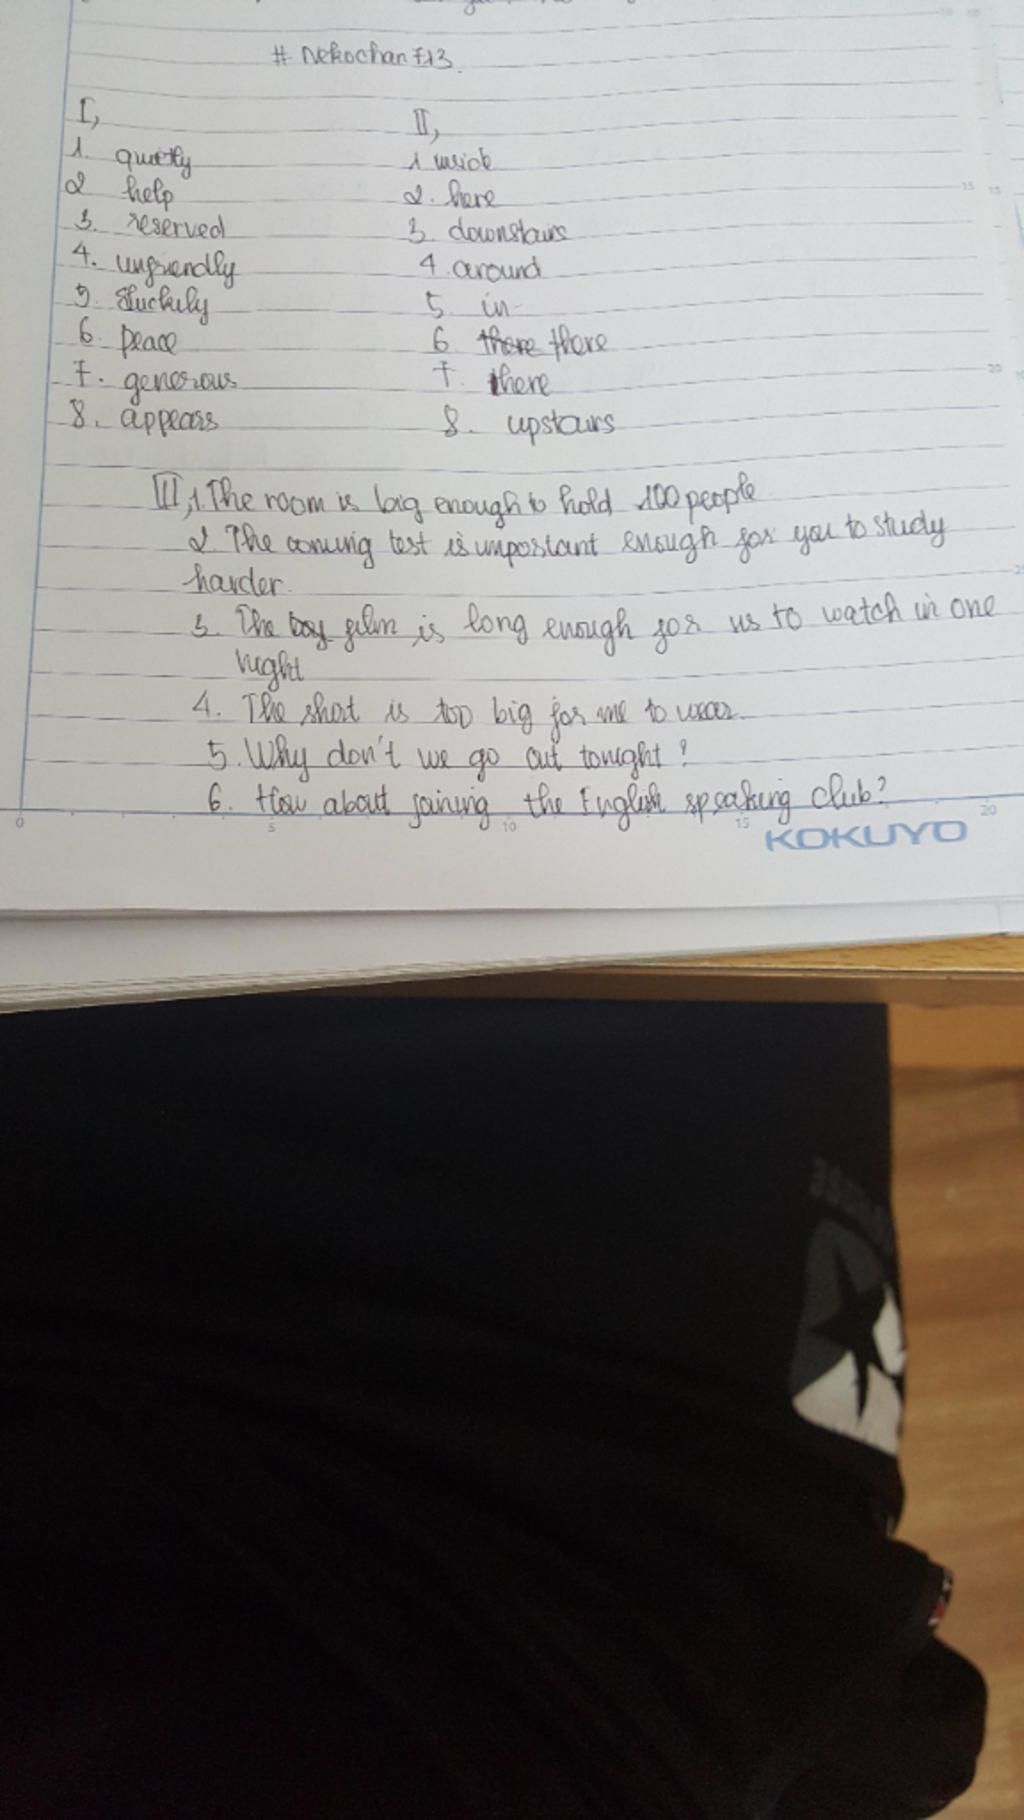 # Nekochan713.
I,
1. quietly
2 help
3. reserved
4. unfriendly
5. sluckily
6. peace
7. generous
8. appears
II,
1 inside
2. here
3. downstairs
4. around
5. in
6 there there
7. there
8. upstairs
III, 1. The room is big enough to hold 100 people
2. The coming test is important enough for you to study
harder.
3. The boy film is long enough for us to watch in one
night
4. The shirt is too big for me to wear.
5. Why don't we go out tonight?
6. How about joining the English speaking club?
0 5 10 15 20
KOKUYO